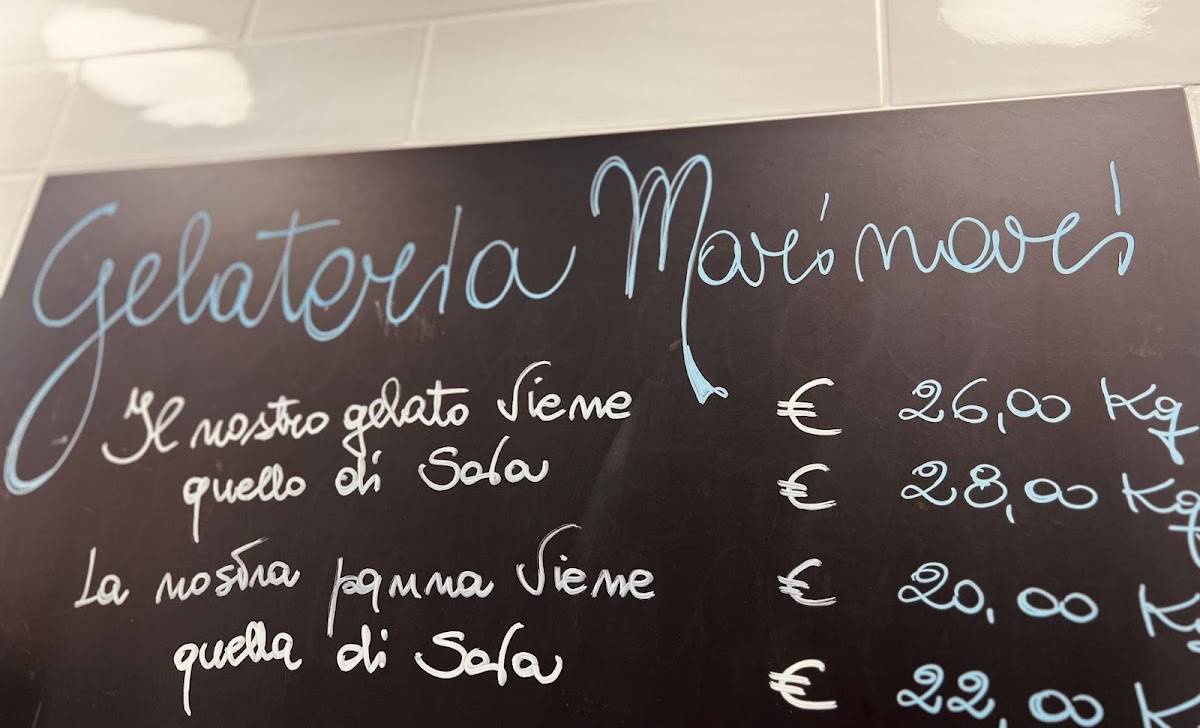 Gelateria Marinari
Il nostro gelato viene € 26,00 Kg
quello di Sala € 28,00 Kg
La nostra panna viene € 20,00 Kg
quella di Sala € 22,00 K